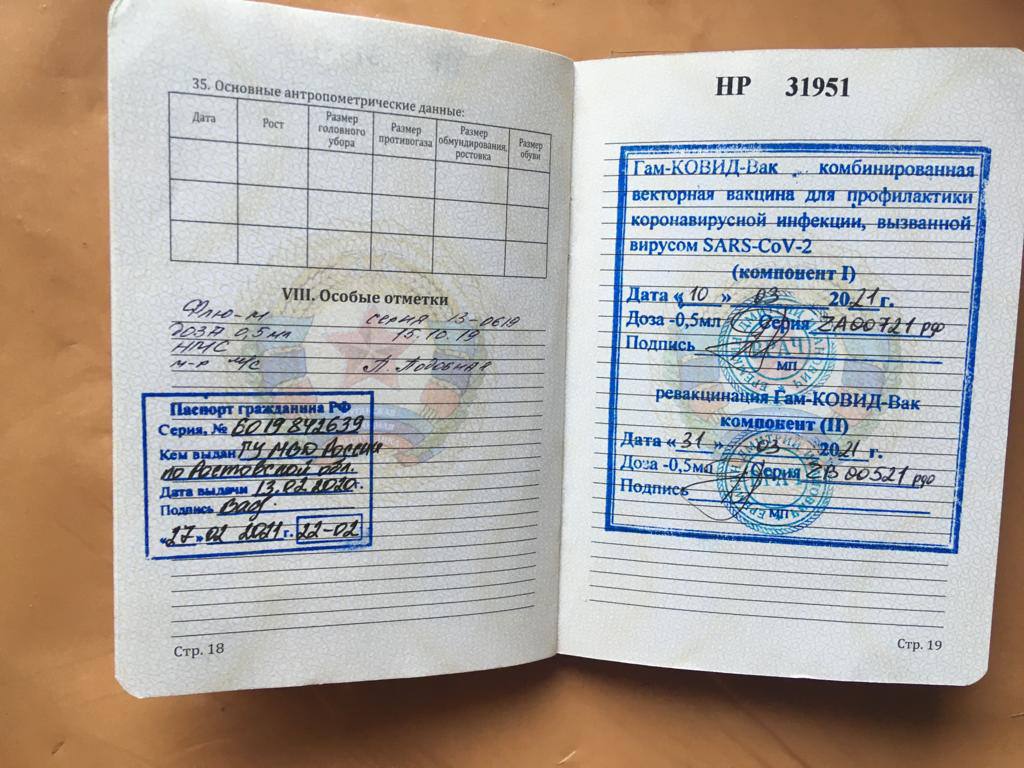 35. Основные антропометрические данные:
Дата Рост Размер головного убора Размер противогаза Размер обмундирования, ростовка Размер обуви
VIII. Особые отметки
Флю-М серия 13-0619
доза 0,5 мл 15.10.19
НМС
м-р м/с Л. Подобная
Паспорт гражданина РФ
Серия, № 6019842639
Кем выдан ГУ МВД России
по Ростовской обл.
Дата выдачи 13.02.2020г.
Подпись
«27» 02 2021 г. 22-02
Стр. 18
НР 31951
Гам-КОВИД-Вак комбинированная
векторная вакцина для профилактики
коронавирусной инфекции, вызванной
вирусом SARS-CoV-2
(компонент I)
Дата «10» 03 2021 г.
Доза -0,5мл Серия ZA00721 рдо
Подпись
ВРАЧ
МП
ревакцинация Гам-КОВИД-Вак
компонент (II)
Дата «31» 03 2021 г.
Доза -0,5мл Серия ZB00521 рдо
Подпись
МП
Стр. 19